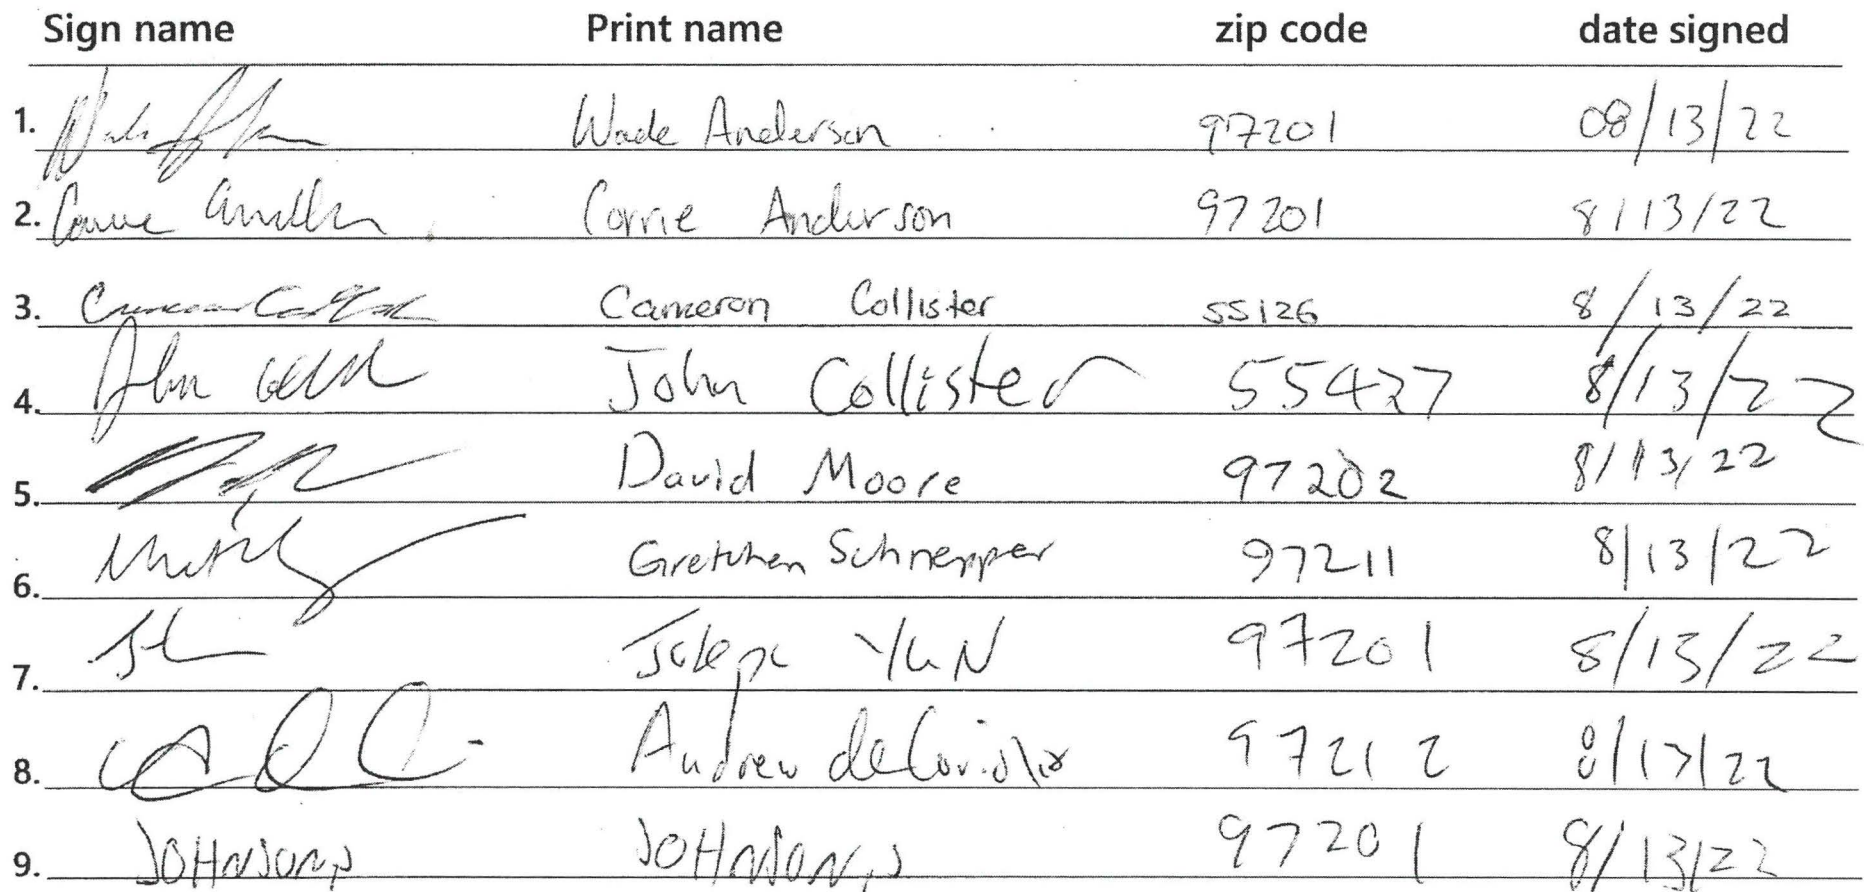 Sign name Print name zip code date signed
1. Wade Anderson 97201 08/13/22
2. Corrie Anderson 97201 8/13/22
3. Cameron Collister 55126 8/13/22
4. John Collister 55427 8/13/22
5. David Moore 97202 8/13/22
6. Gretchen Schnepper 97211 8/13/22
7. Joseph YUN 97201 8/13/22
8. Andrew 97212 8/13/22
9. JOHNSON, J JOHNSON, J 97201 8/13/22